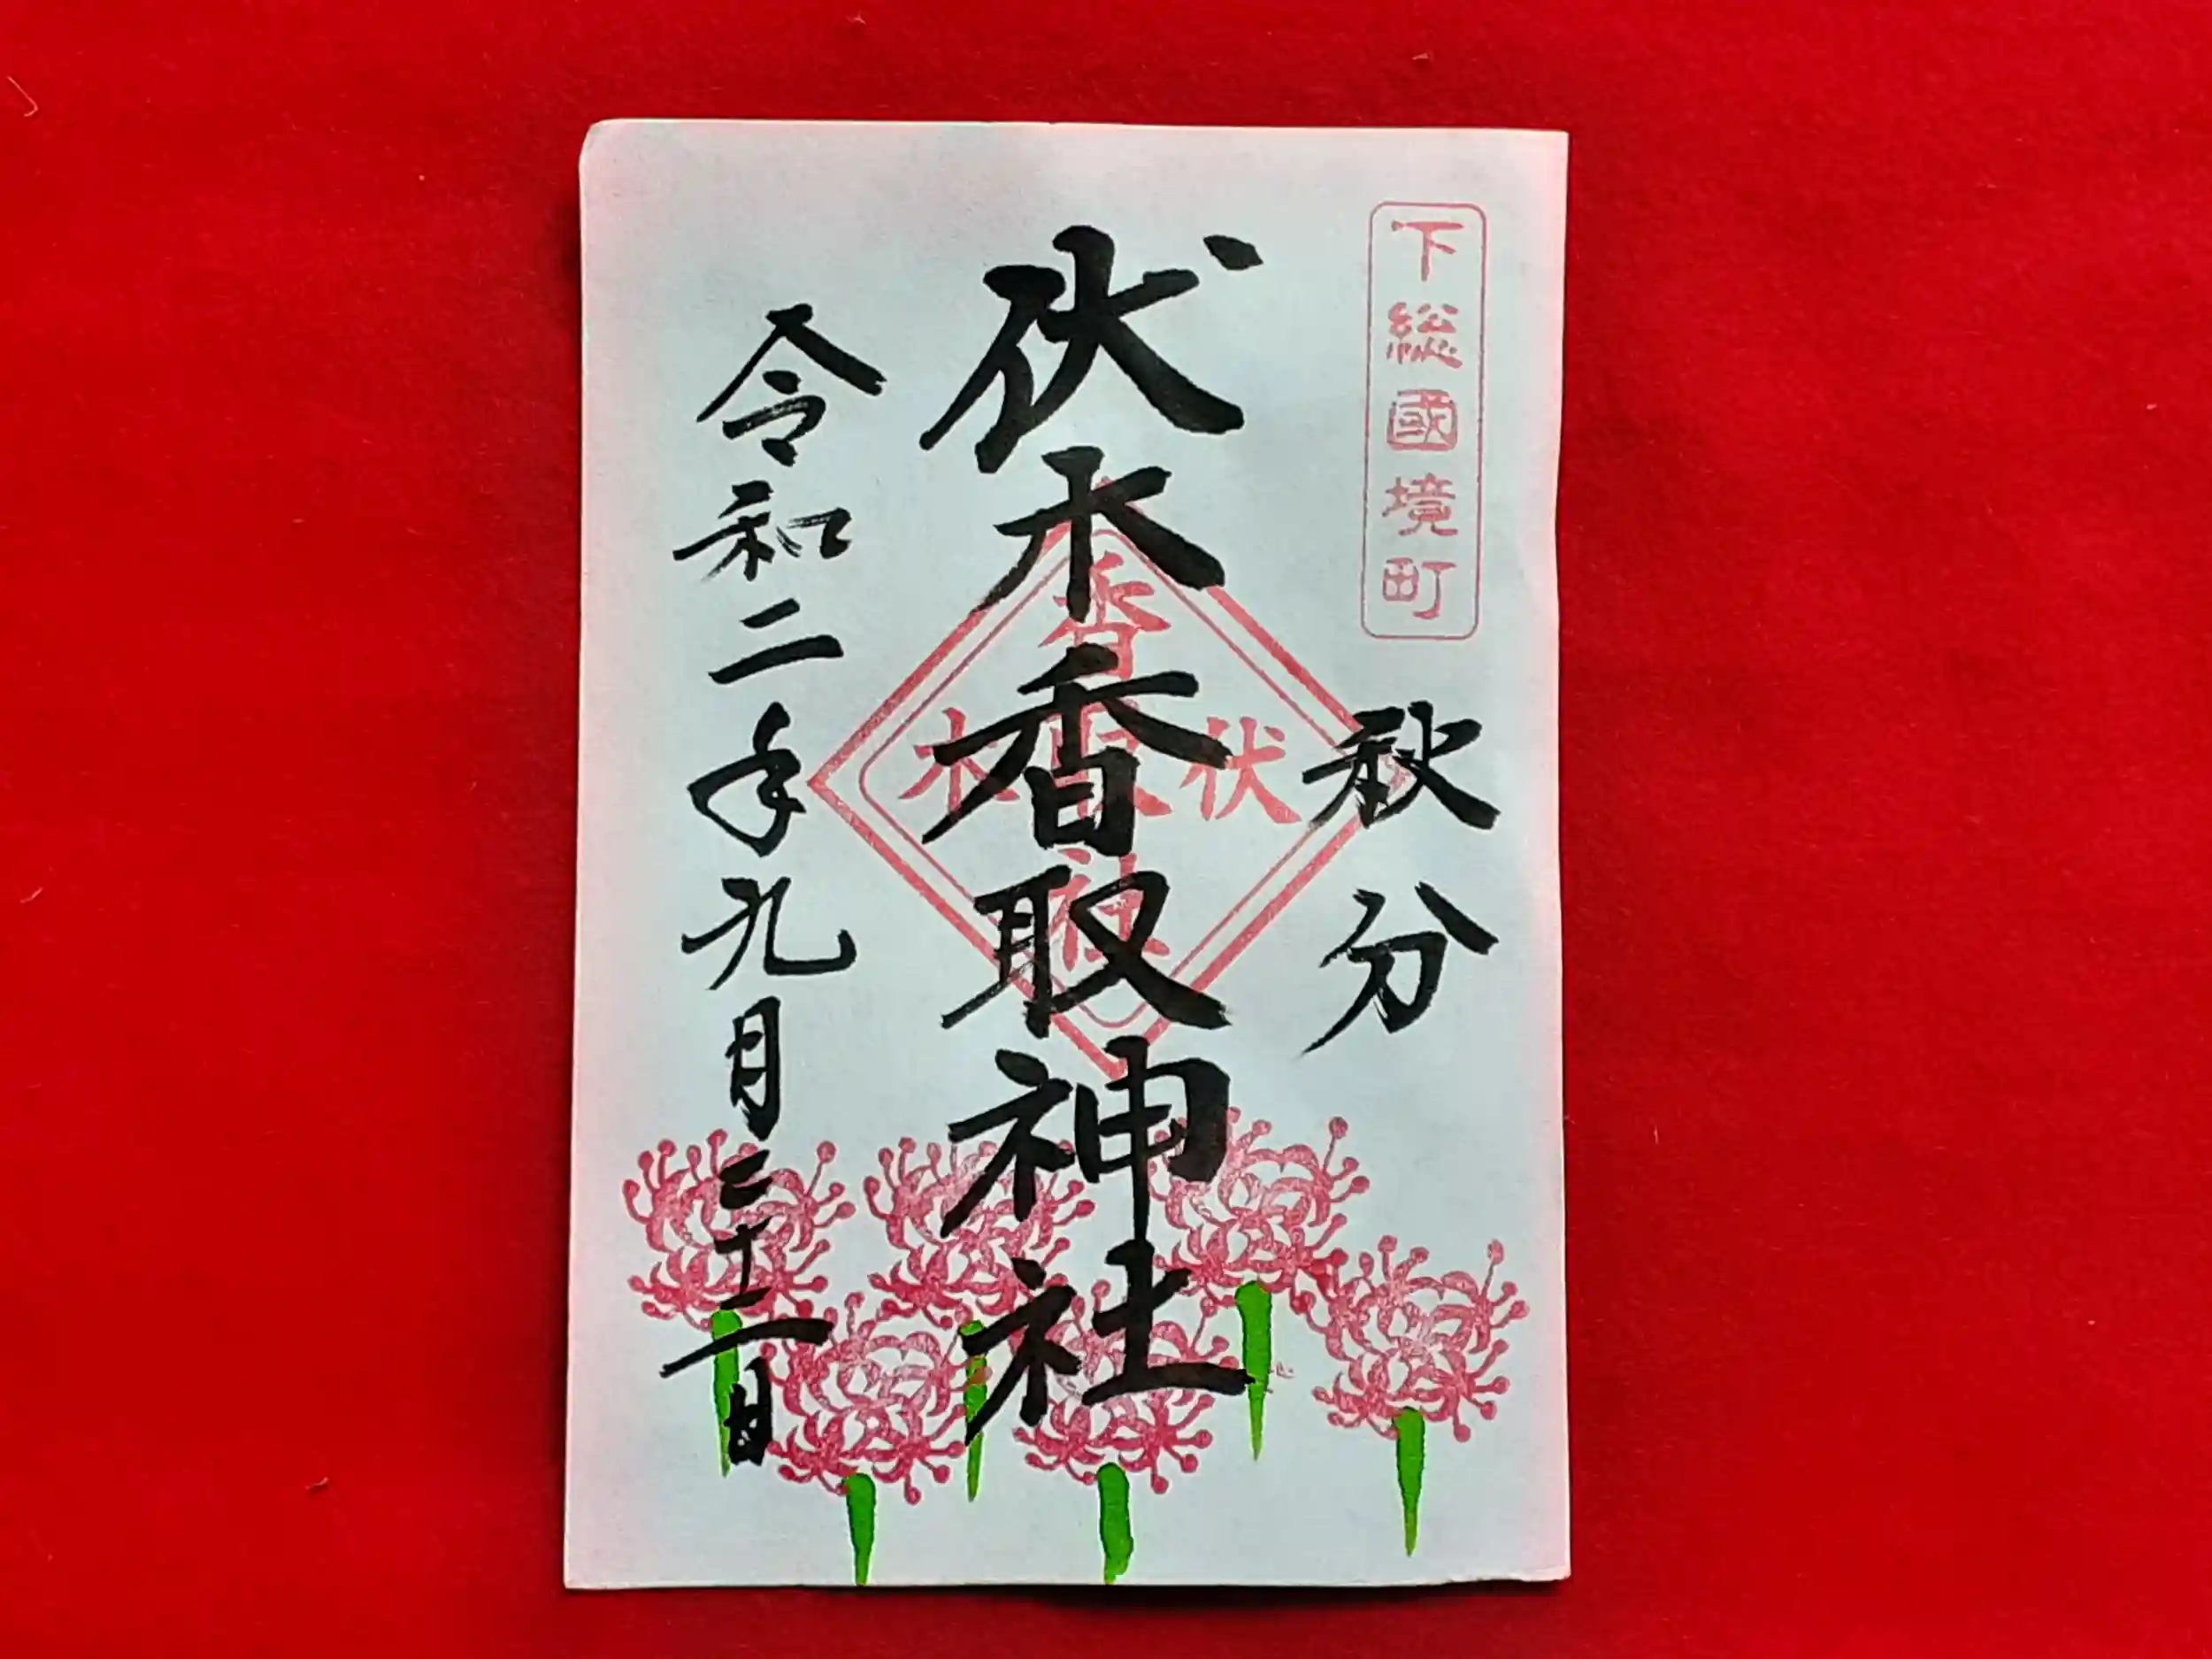 下総國境町
秋分
伏木香取神社
伏木
香取社
令和二年九月二十二日